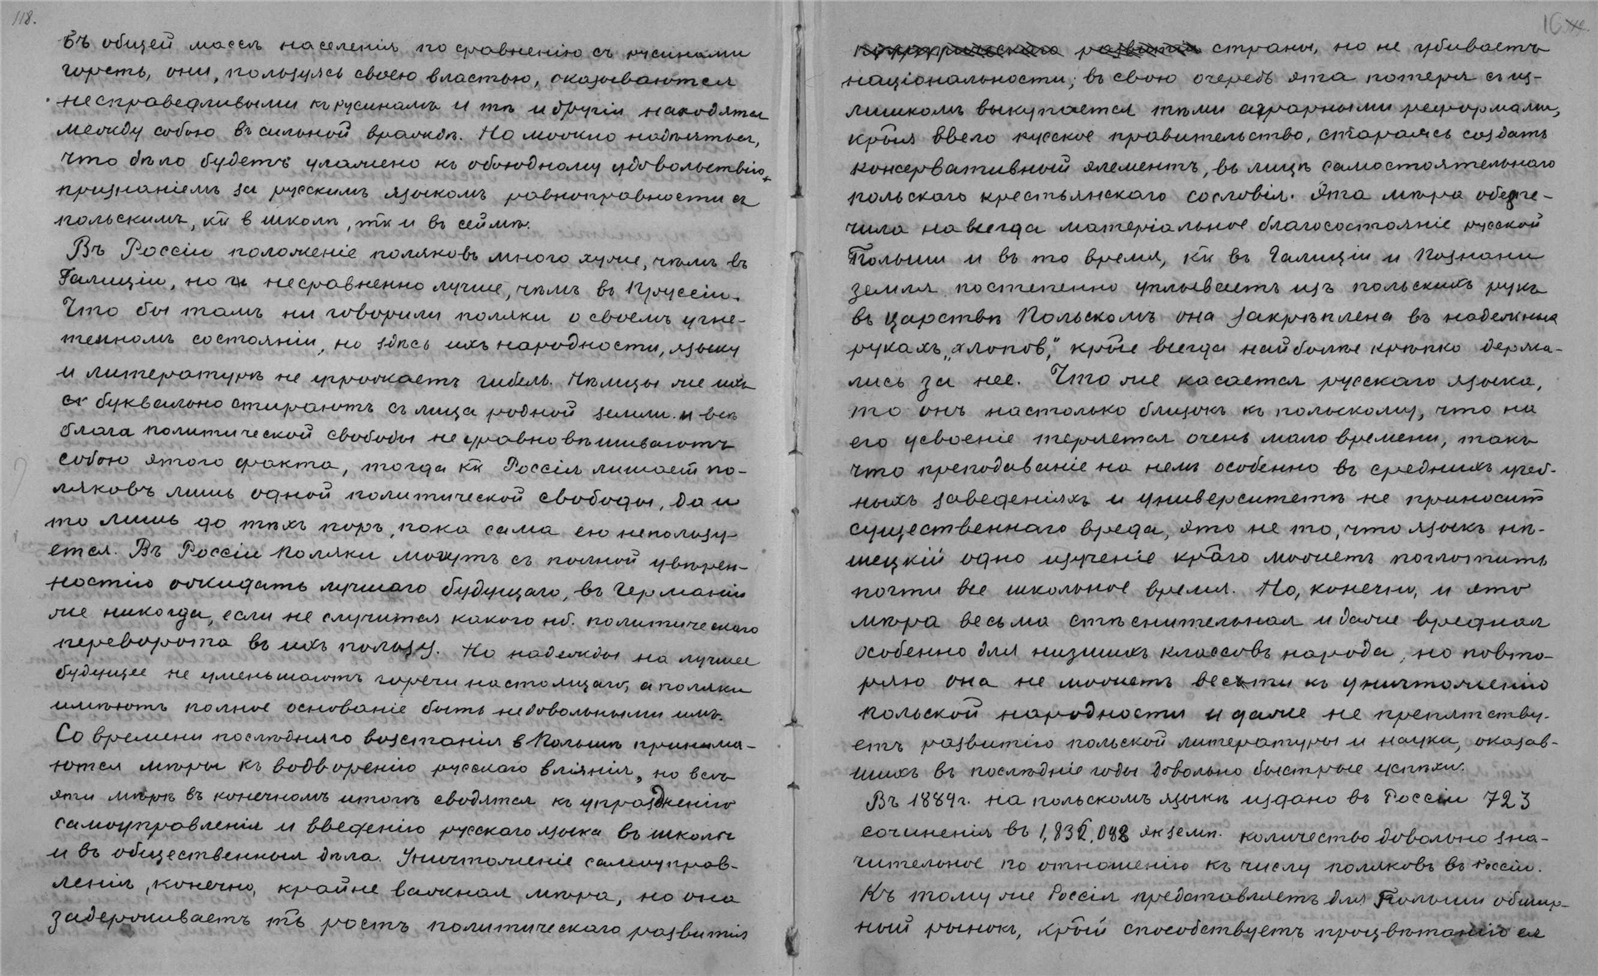 118.
въ общей массѣ населенія по сравненію съ русинами
горсть, они, пользуясь своею властью, оказываются
несправедливыми къ русинамъ и тѣ и другіе находятся
между собою въ сильной враждѣ. Но можно надѣяться,
что дѣло будетъ улажено къ обоюдному удовольствію,
признаніемъ за русскимъ языкомъ равноправности съ
польскимъ, кк въ школѣ, тк и въ сеймѣ.
Въ Россіи положеніе поляковъ много хуже, чѣмъ въ
Галиціи, но и несравненно лучше, чѣмъ въ Пруссіи.
Что бы тамъ ни говорили поляки о своемъ угне-
тенномъ состояніи, но здѣсь ихъ народности, языку
и литературѣ не угрожаетъ гибель. Нѣмцы же ихъ
буквально стираютъ съ лица родной земли и всѣ
блага политической свободы не уравновѣшиваютъ
собою этого факта, тогда кк Россія лишаетъ по-
ляковъ лишь одной политической свободы, да и
то лишь до тѣхъ поръ, пока сама ею не пользу-
ется. Въ Россіи поляки могутъ съ полной увѣрен-
ностію ожидать лучшаго будущаго, въ Германіи
же никогда, если не случится какого нб. политическаго
переворота въ ихъ пользу. Но надежды на лучшее
будущее не уменьшаютъ горечи настоящаго, а поляки
имѣютъ полное основаніе быть недовольными имъ.
Со времени послѣдняго возстанія в Польшѣ принима-
ются мѣры къ водворенію русскаго вліянія, но всѣ
эти мѣры въ конечномъ итогѣ сводятся къ упраздненію
самоуправленія и введенію русскаго языка въ школы
и въ общественныя дѣла. Уничтоженіе самоуправ-
ленія, конечно, крайне важная мѣра, но она
задерживаетъ тк ростъ политическаго развитія
16
страны, но не убиваетъ
національности; въ свою очередь эта потеря съ из-
лишкомъ выкупается тѣми аграрными реформами,
крыя ввело русское правительство, стараясь создать
консервативный элементъ, въ лицѣ самостоятельнаго
польскаго крестьянскаго сословія. Эта мѣра обезпе-
чила навсегда матеріальное благосостояніе русской
Польши и въ то время, кк въ Галиціи и Познани
земля постепенно уплываетъ изъ польскихъ рукъ
въ царствѣ Польскомъ она закрѣплена въ надежныхъ
рукахъ „хлоповъ“, крые всегда наиболѣе крѣпко держа-
лись за нее. Что же касается русскаго языка,
то онъ настолько близокъ къ польскому, что на
его усвоеніе теряется очень мало времени, такъ
что преподаваніе на немъ особенно въ среднихъ учеб-
ныхъ заведеніяхъ и университетѣ не приноситъ
существеннаго вреда, это не то, что языкъ нѣ-
мецкій одно изученіе краго можетъ поглотить
почти все школьное время. Но, конечно, и это
мѣра весьма стѣснительная и даже вредная
особенно для низшихъ классовъ народа, но повто-
ряю она не можетъ вести къ уничтоженію
польской народности и даже не препятству-
етъ развитію польской литературы и науки, оказав-
шихъ въ послѣдніе годы довольно быстрые успѣхи.
Въ 1889г. на польскомъ языкѣ издано въ Россіи 723
сочиненія въ экземп. количество довольно зна-
чительное по отношенію къ числу поляковъ въ Россіи.
Къ тому же Россія представляетъ для Польши обшир-
ный рынокъ, крый способствуетъ процвѣтанію ея